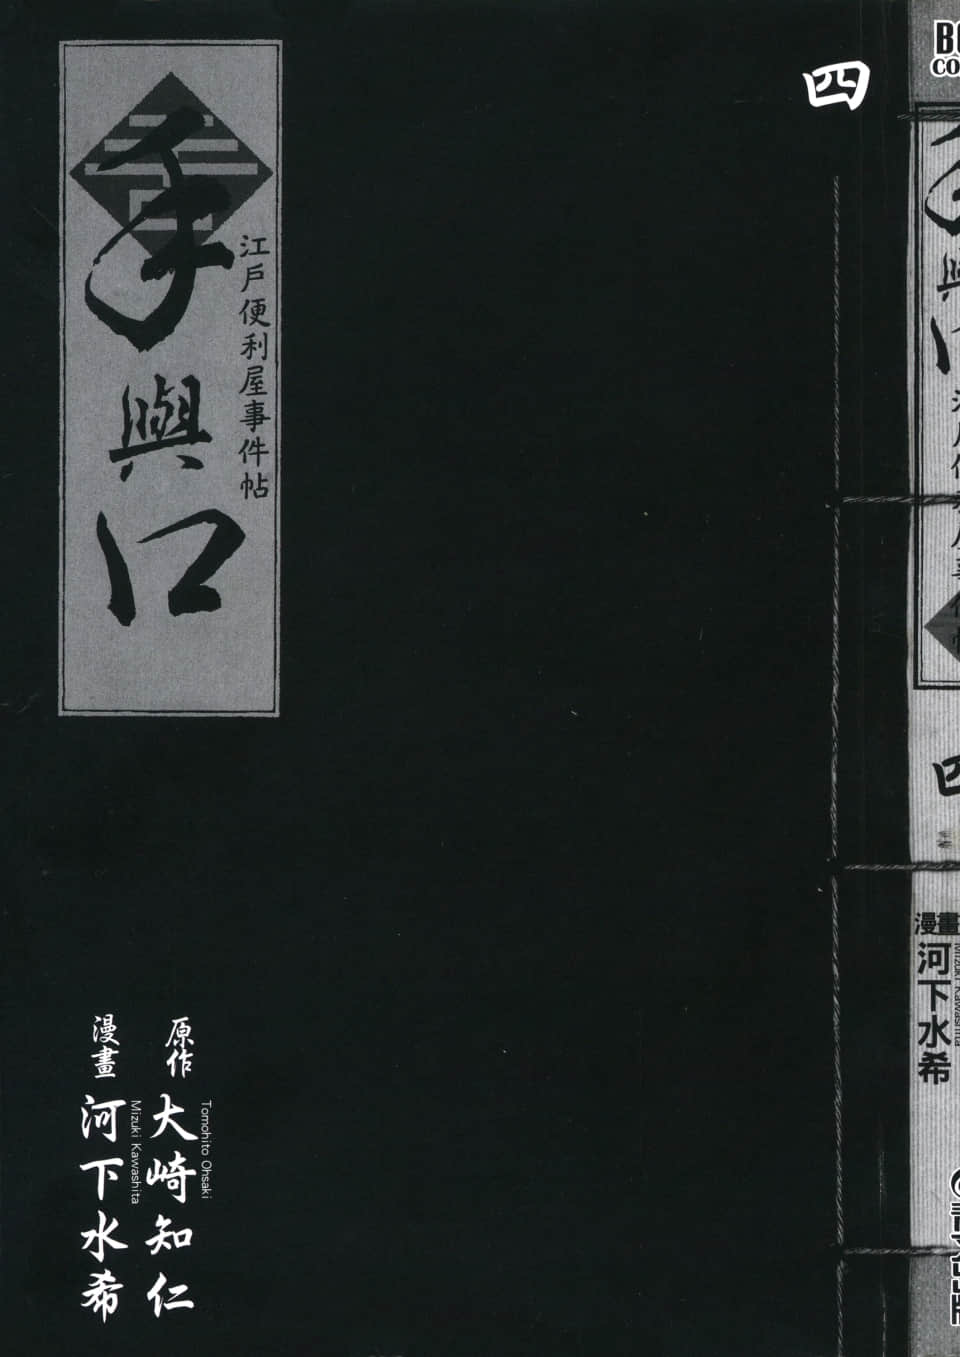 四
手與口
江戶便利屋事件帖
原作
大崎知仁
Tomohito Ohsaki
漫畫
河下水希
Mizuki Kawashita
四
漫畫
河下水希
Mizuki Kawashita